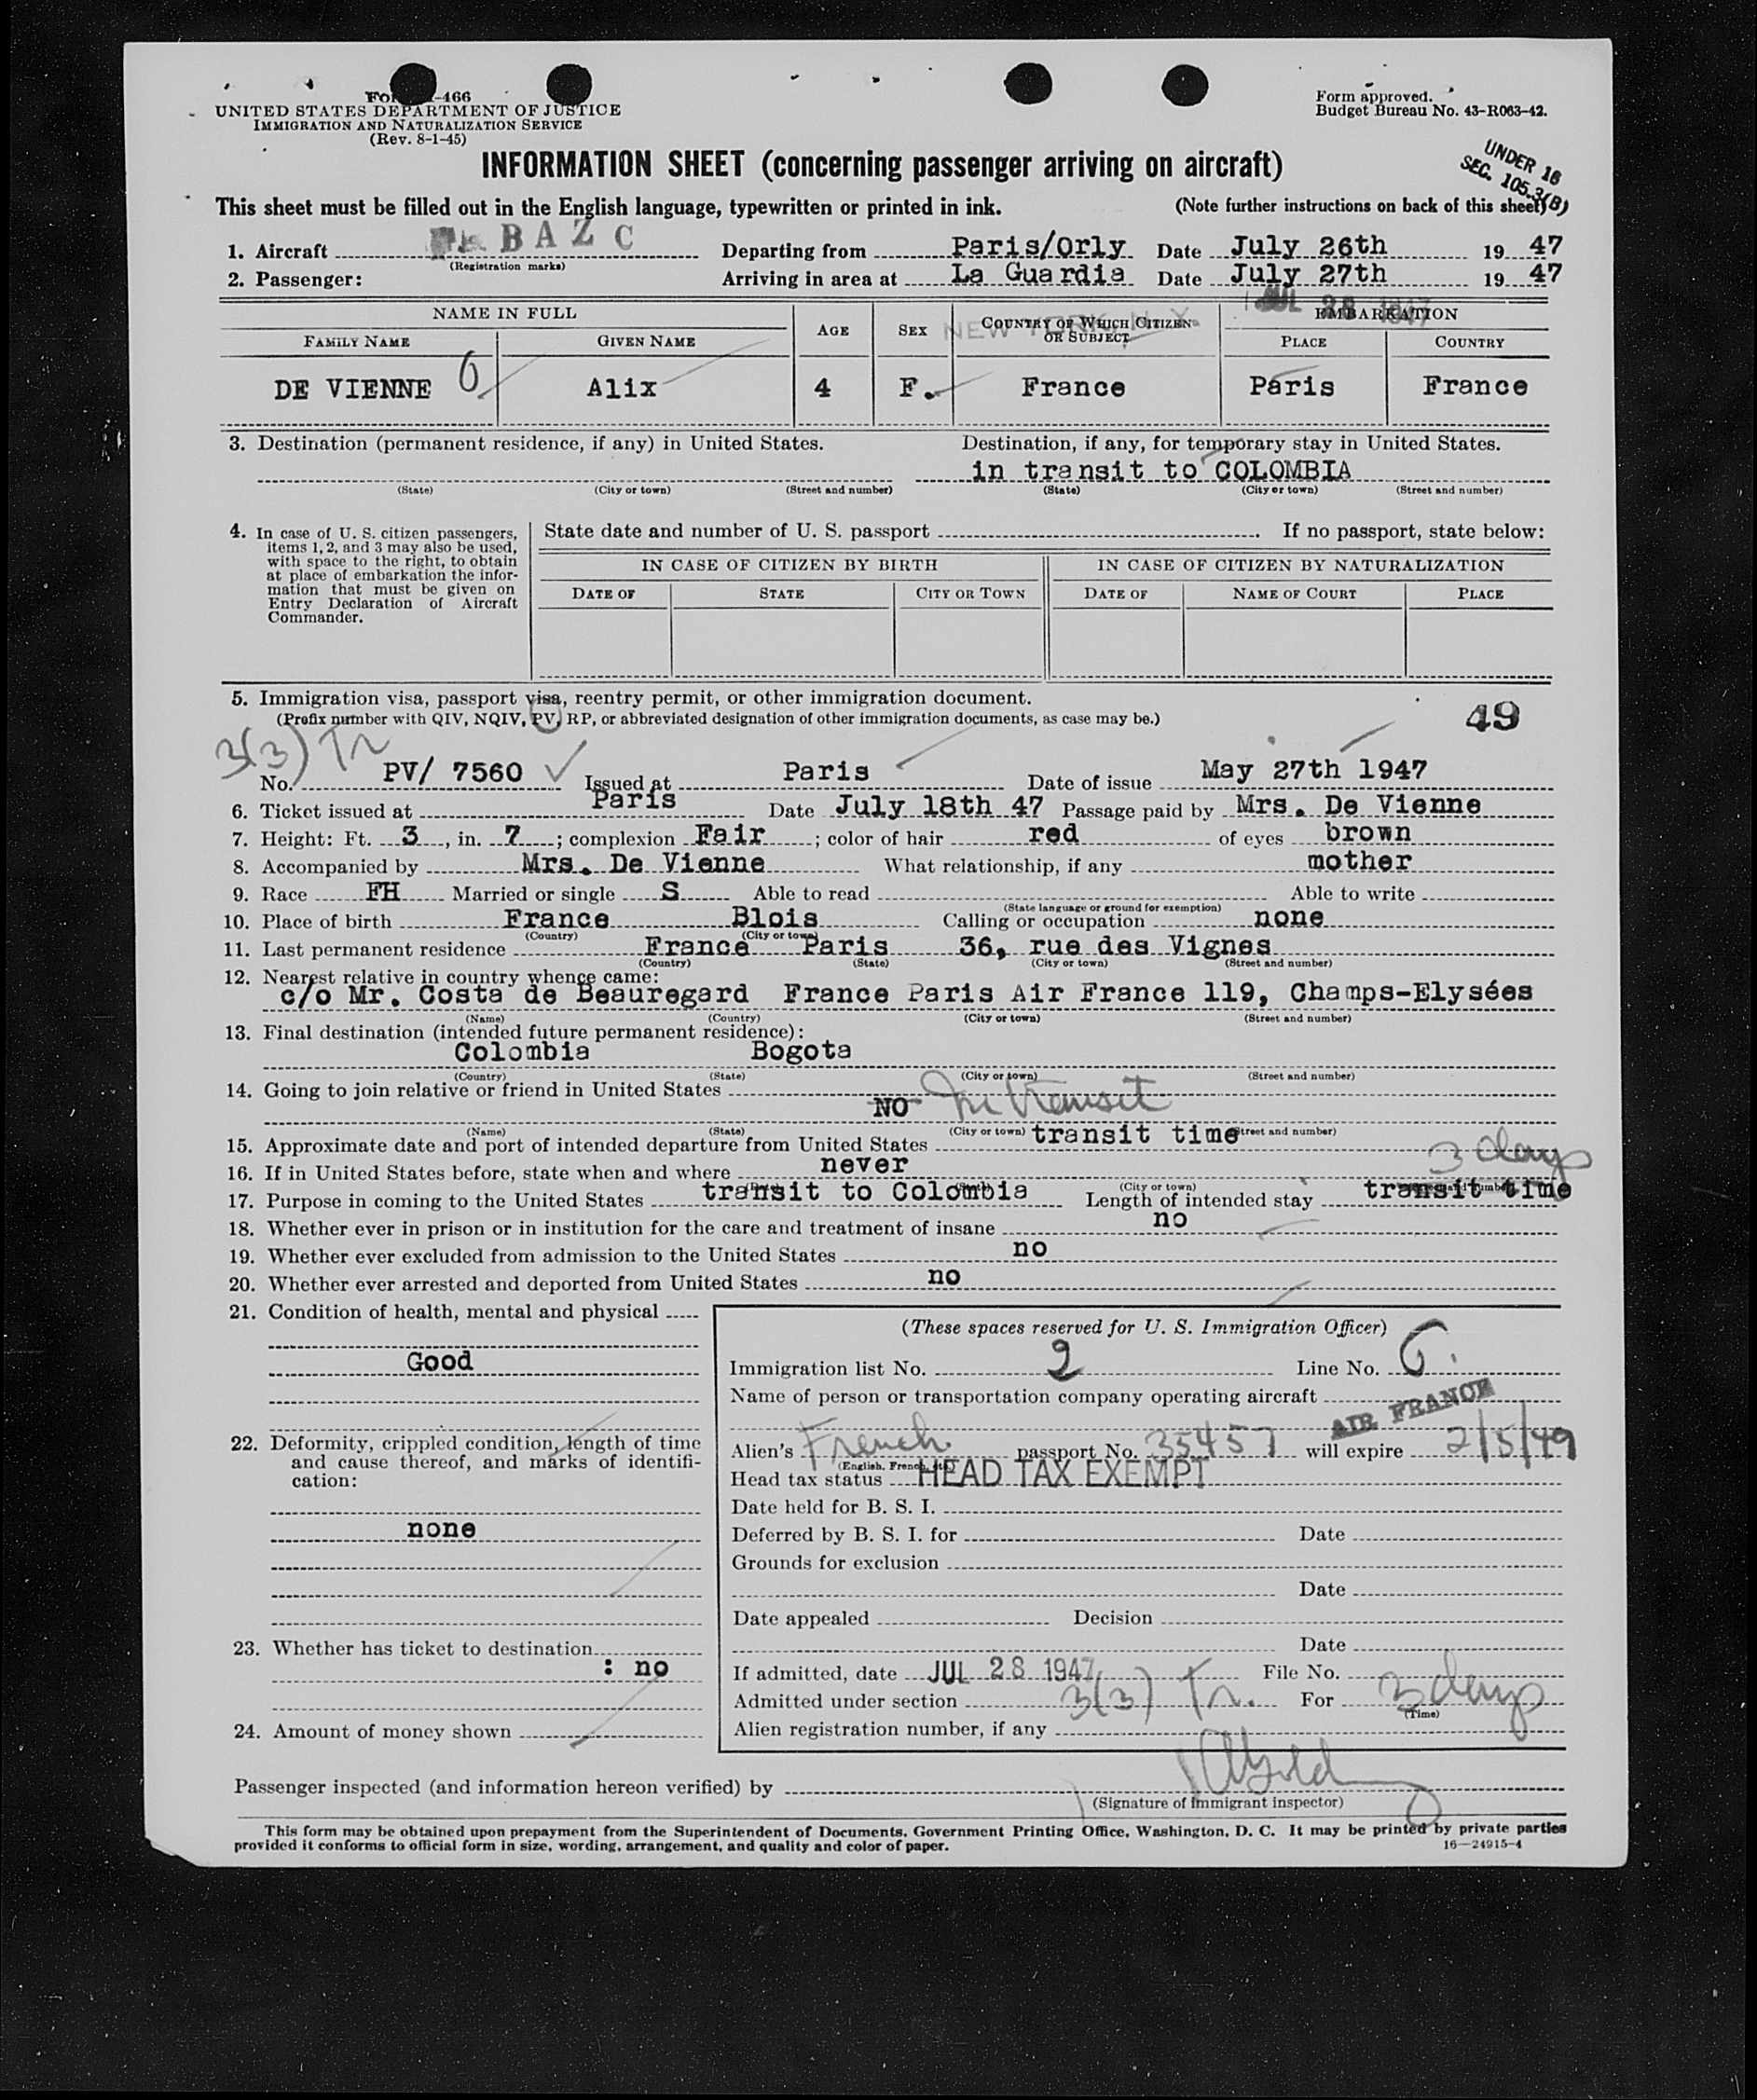 Form -466
UNITED STATES DEPARTMENT OF JUSTICE
IMMIGRATION AND NATURALIZATION SERVICE
(Rev. 8-1-45)
Form approved.
Budget Bureau No. 43-R063-42.
INFORMATION SHEET (concerning passenger arriving on aircraft)
UNDER 16
SEC. 105.3(B)
This sheet must be filled out in the English language, typewritten or printed in ink. (Note further instructions on back of this sheet)
1. Aircraft BAZC Departing from Paris/Orly Date July 26th 1947
(Registration marks)
2. Passenger: Arriving in area at La Guardia Date July 27th 1947
JUL 28 1947
NEW YORK, N.Y.
NAME IN FULL AGE SEX COUNTRY OF WHICH CITIZEN OR SUBJECT EMBARKATION
FAMILY NAME GIVEN NAME PLACE COUNTRY
DE VIENNE 6 Alix 4 F. France Paris France
3. Destination (permanent residence, if any) in United States. Destination, if any, for temporary stay in United States.
in transit to COLOMBIA
(State) (City or town) (Street and number) (State) (City or town) (Street and number)
4. In case of U. S. citizen passengers, items 1, 2, and 3 may also be used, with space to the right, to obtain at place of embarkation the information that must be given on Entry Declaration of Aircraft Commander.
State date and number of U. S. passport . If no passport, state below:
IN CASE OF CITIZEN BY BIRTH IN CASE OF CITIZEN BY NATURALIZATION
DATE OF STATE CITY OR TOWN DATE OF NAME OF COURT PLACE
5. Immigration visa, passport visa, reentry permit, or other immigration document.
(Prefix number with QIV, NQIV, PV, RP, or abbreviated designation of other immigration documents, as case may be.) 49
3(3) Tr
No. PV/ 7560 Issued at Paris Date of issue May 27th 1947
6. Ticket issued at Paris Date July 18th 47 Passage paid by Mrs. De Vienne
7. Height: Ft. 3, in. 7; complexion Fair; color of hair red of eyes brown
8. Accompanied by Mrs. De Vienne What relationship, if any mother
9. Race FH Married or single S Able to read Able to write
(State language or ground for exemption)
10. Place of birth France Blois Calling or occupation none
(Country) (City or town)
11. Last permanent residence France Paris 36, rue des Vignes
(Country) (State) (City or town) (Street and number)
12. Nearest relative in country whence came:
c/o Mr. Costa de Beauregard France Paris Air France 119, Champs-Elysées
(Name) (Country) (City or town) (Street and number)
13. Final destination (intended future permanent residence):
Colombia Bogota
(Country) (State) (City or town) (Street and number)
14. Going to join relative or friend in United States
NO In transit
(Name) (State) (City or town) (Street and number)
15. Approximate date and port of intended departure from United States transit time 3 days
16. If in United States before, state when and where never
(City or town)
17. Purpose in coming to the United States transit to Colombia Length of intended stay transit time
18. Whether ever in prison or in institution for the care and treatment of insane no
19. Whether ever excluded from admission to the United States no
20. Whether ever arrested and deported from United States no
21. Condition of health, mental and physical
Good
22. Deformity, crippled condition, length of time and cause thereof, and marks of identification:
none
23. Whether has ticket to destination
: no
24. Amount of money shown
(These spaces reserved for U. S. Immigration Officer)
Immigration list No. 2 Line No. 6.
Name of person or transportation company operating aircraft
AIR FRANCE
Alien's French passport No. 35457 will expire 2/5/49
(English, French, etc.)
Head tax status HEAD TAX EXEMPT
Date held for B. S. I.
Deferred by B. S. I. for Date
Grounds for exclusion
Date
Date appealed Decision
Date
If admitted, date JUL 28 1947 File No.
Admitted under section 3(3) Tr. For 3 days
(Time)
Alien registration number, if any
Passenger inspected (and information hereon verified) by
(Signature of immigrant inspector)
This form may be obtained upon prepayment from the Superintendent of Documents, Government Printing Office, Washington, D. C. It may be printed by private parties
provided it conforms to official form in size, wording, arrangement, and quality and color of paper. 16—24915-4